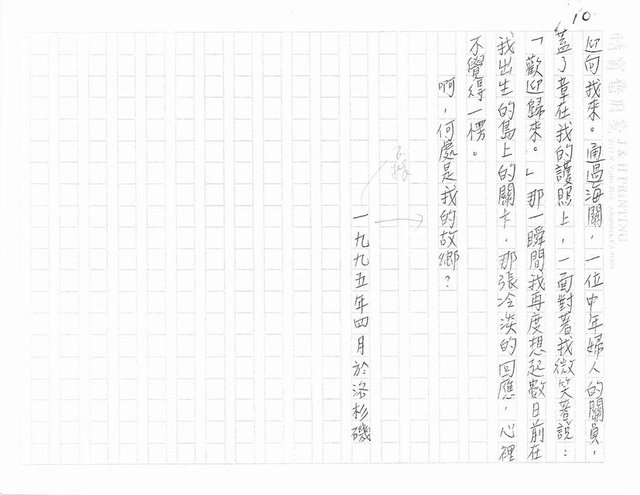 10
迎向我來。通過海關，一位中年婦人的關員，
蓋了章在我的護照上，一面對著我微笑著說：
「歡迎歸來。」那一瞬間我再度想起數日前在
我出生的島上的關卡，那張冷淡的回應，心裡
不覺得一愣。
啊，何處是我的故鄉？
一九九五年四月於洛杉磯